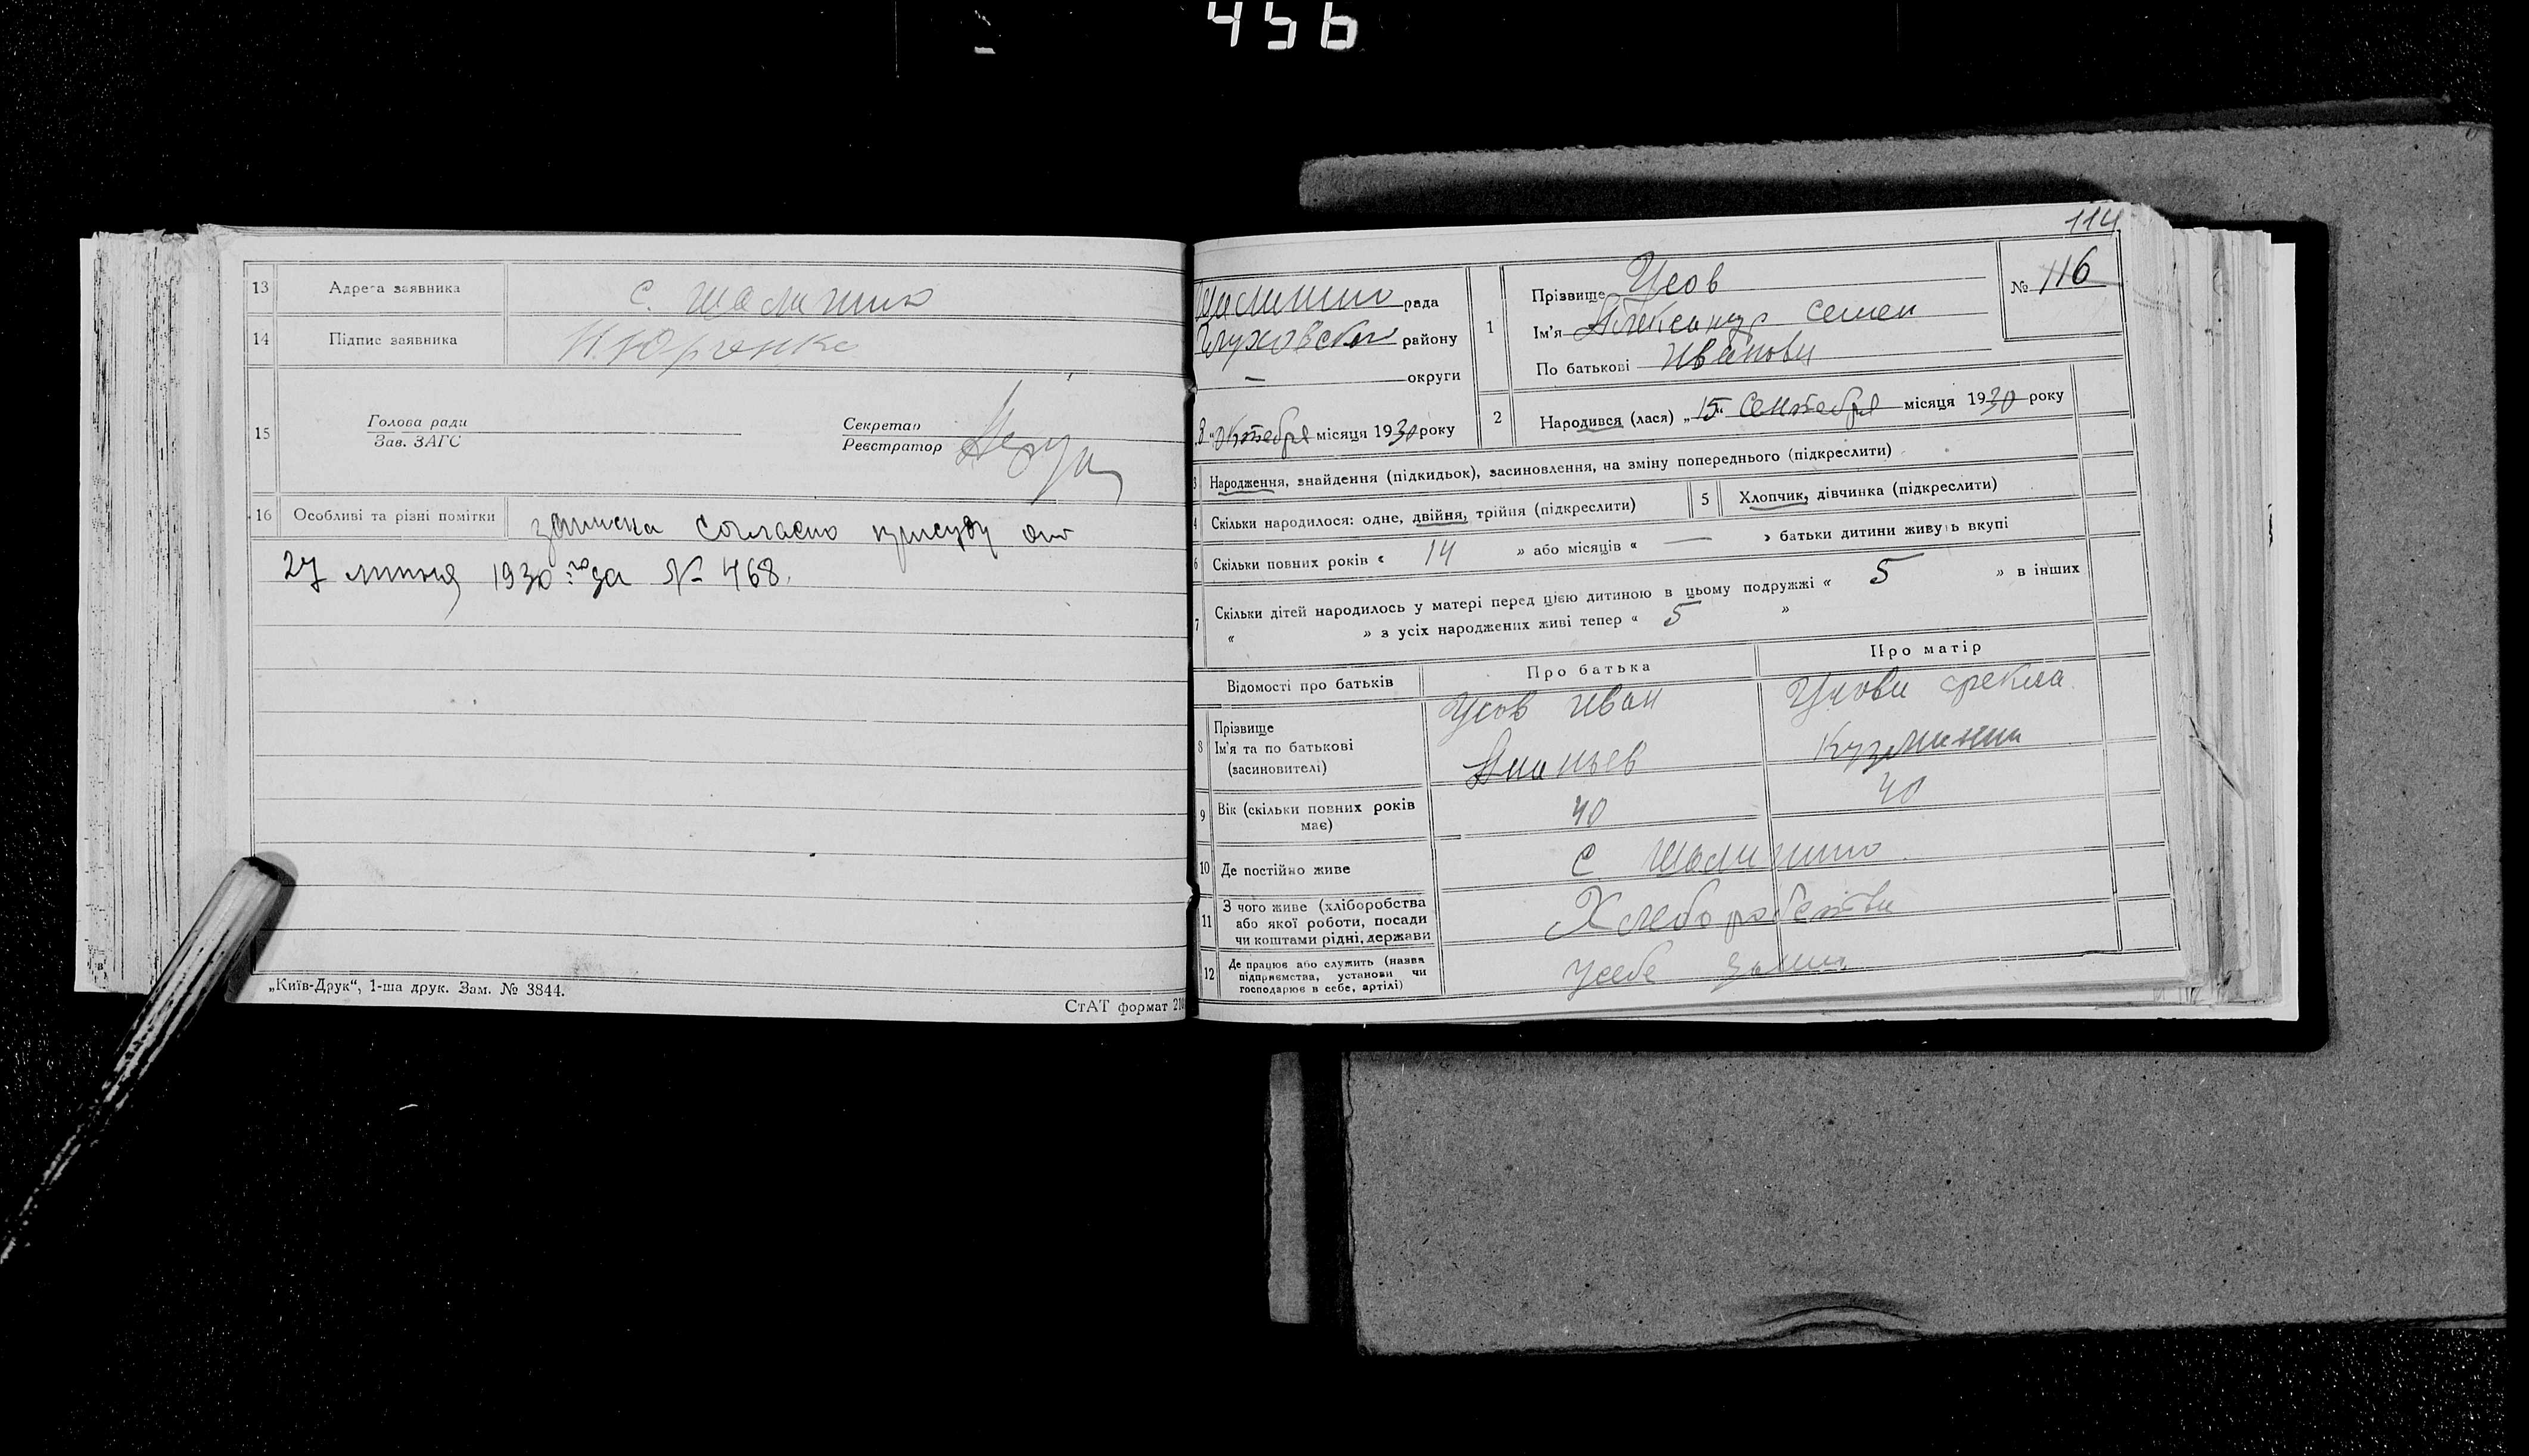 456
13 Адреса заявника с. Шалигино
14 Підпис заявника И. Юрченко
15 Голова ради
Зав. ЗАГС
Секретар
Реєстратор
16 Особливі та різні помітки записка согласно присуду от
27 липня 1930 года № 468.
„Київ-Друк“, 1-ша друк. Зам. № 3844.
СтАТ формат 210
114
Шалигино рада
Глуховскои району
— округи
8 „Октебря місяця 1930 року
1 Прізвище Усов
Ім'я Александр Семен
По батькові Иванови
№ 116
2 Народився (лася) „15“ Сентебря місяця 1930 року
3 Народження, знайдення (підкидьок), засиновлення, на зміну попереднього (підкреслити)
4 Скільки народилося: одне, двійня, трійня (підкреслити)
5 Хлопчик, дівчинка (підкреслити)
6 Скільки повних років « 14 » або місяців « — » батьки дитини живуть вкупі
7 Скільки дітей народилось у матері перед цією дитиною в цьому подружжі « 5 » в інших
« » з усіх народжених живі тепер « 5 »
Відомості про батьків Про батька Про матір
8 Прізвище
Ім'я та по батькові
(засиновителі)
Усов Иван
Ананьев
Усова Фекла
9 Вік (скільки повних років
має)
40 40
10 Де постійно живе с. Шалигино
11 З чого живе (хліборобства
або якої роботи, посади
чи коштами рідні, держави
Хлеборобства
12 Де працює або служить (назва
підприємства, установи чи
господарює в себе, артілі)
Усебе